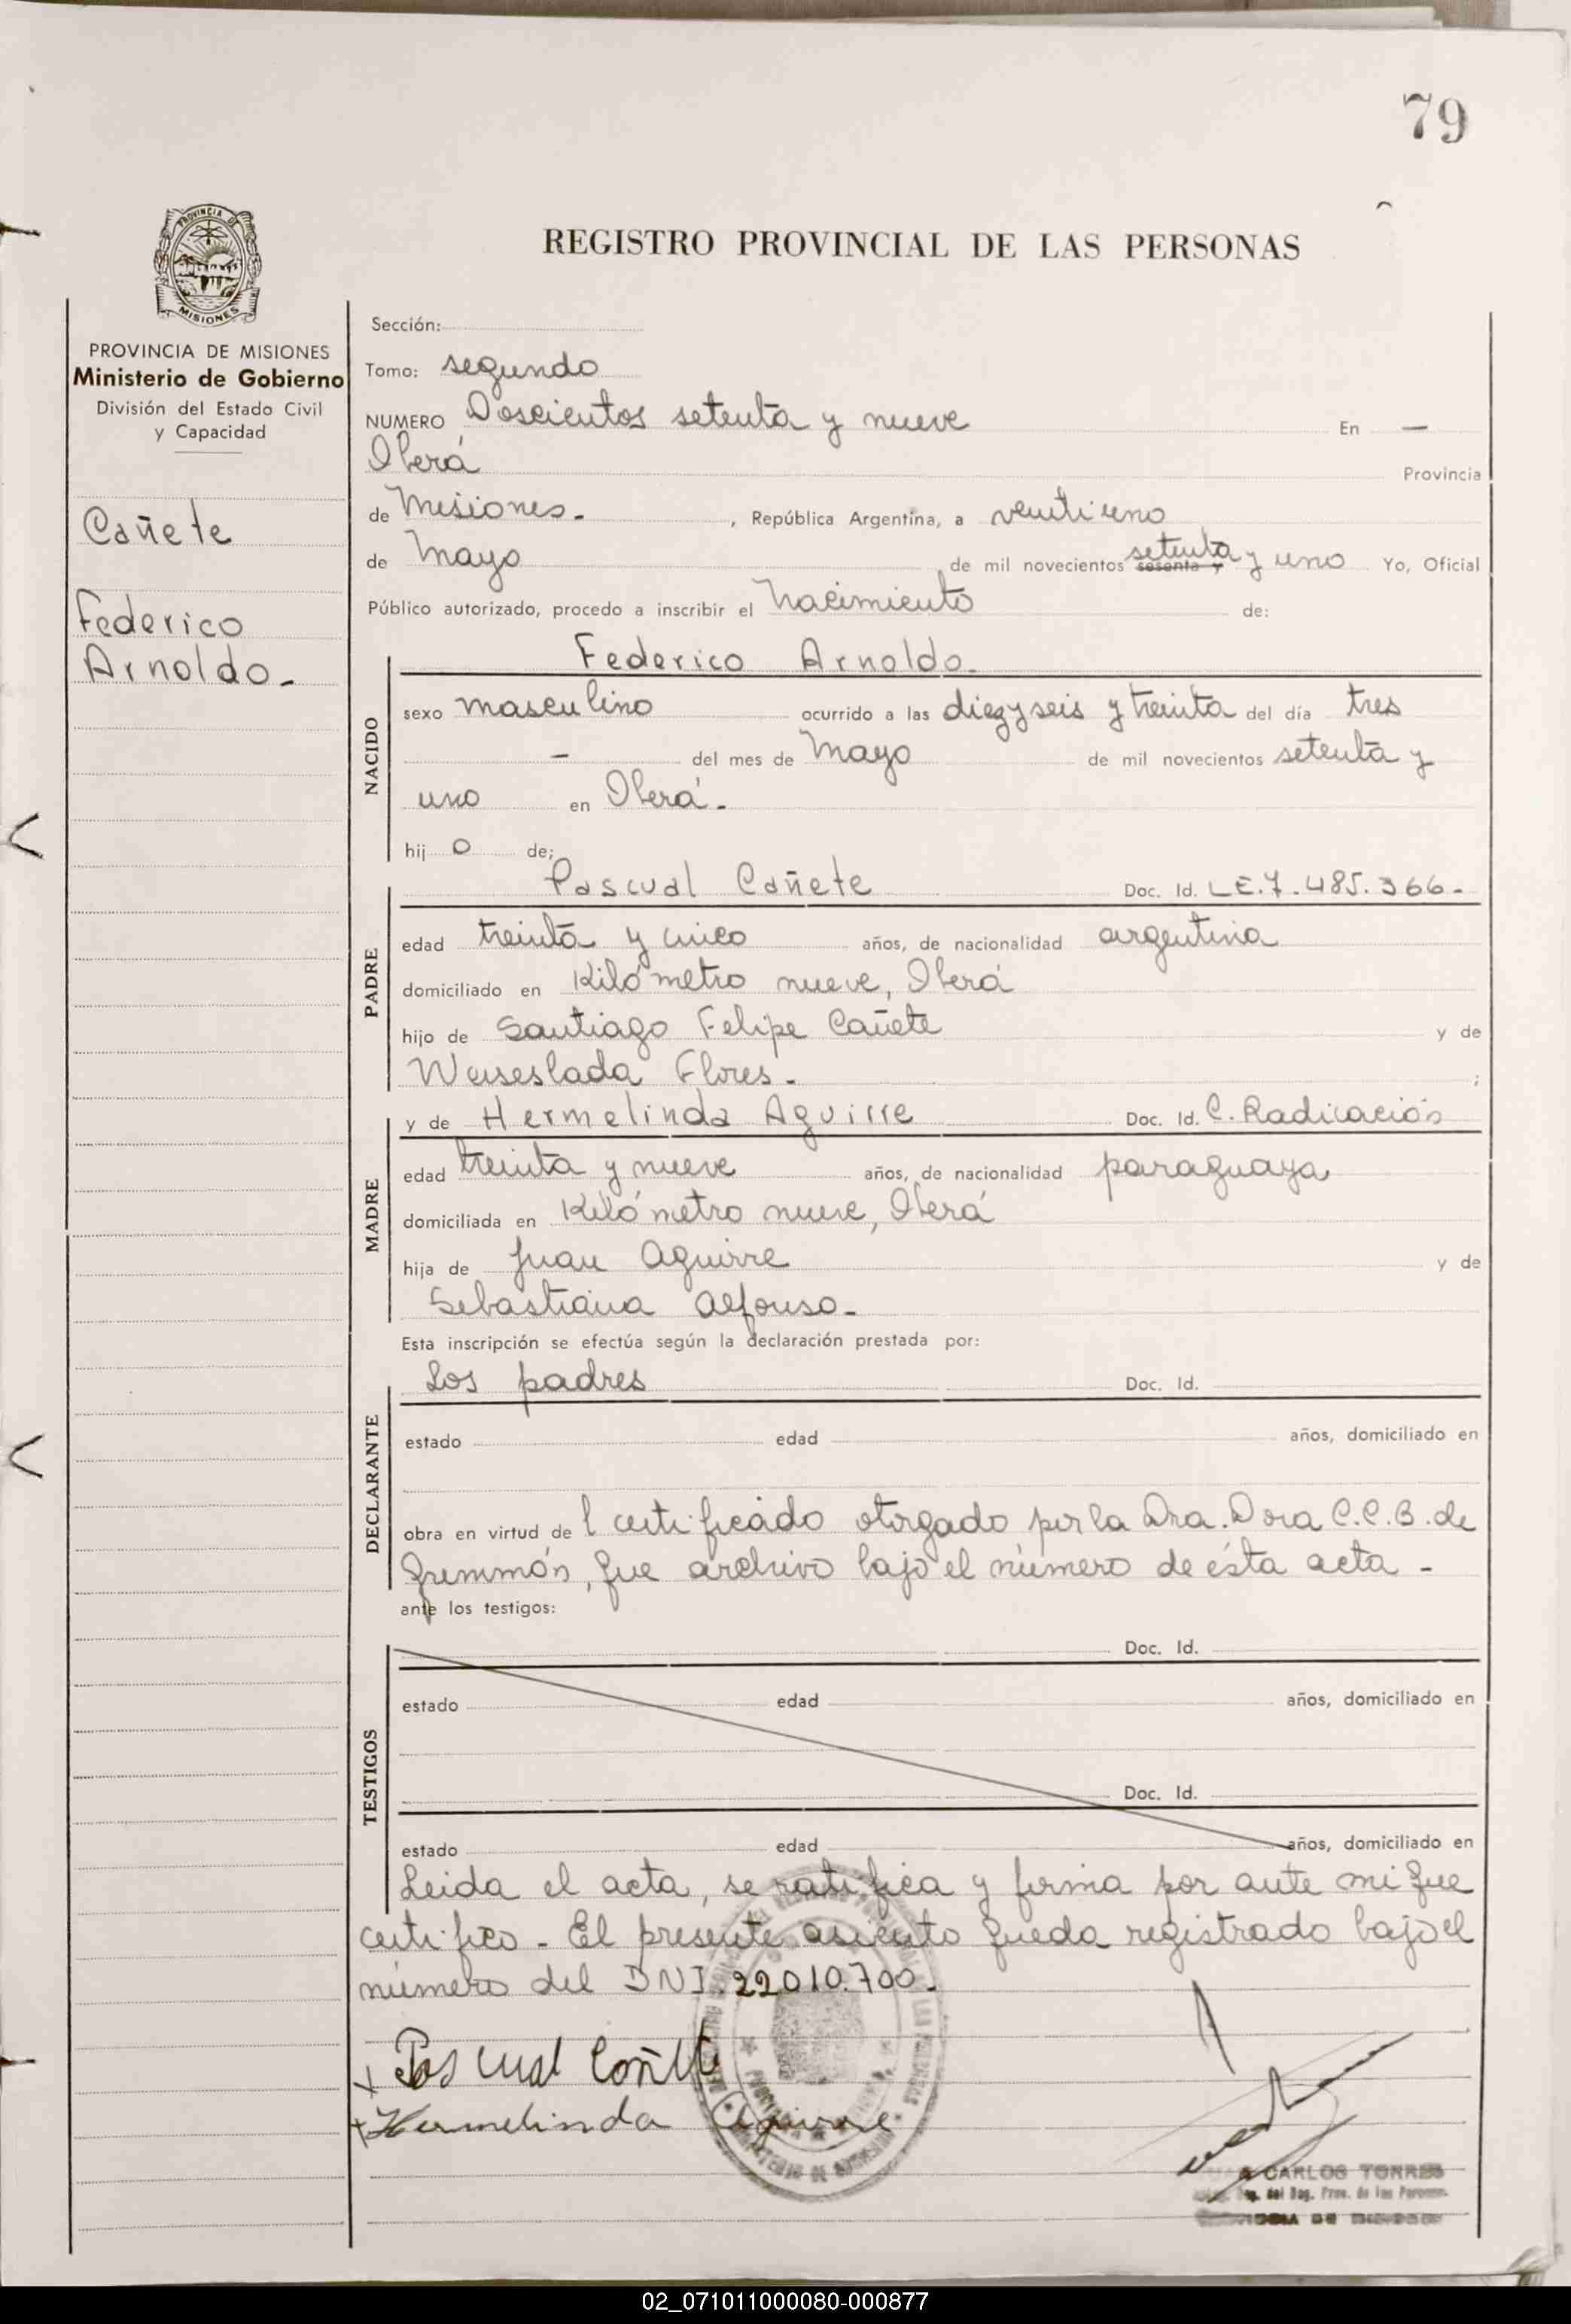 79
PROVINCIA DE
MISIONES
REGISTRO PROVINCIAL DE LAS PERSONAS
PROVINCIA DE MISIONES
Ministerio de Gobierno
División del Estado Civil
y Capacidad
Cañete
Federico
Arnoldo.-
Sección:
Tomo: segundo
NUMERO Doscientos setenta y nueve En —
Oberá Provincia
de Misiones.- , República Argentina, a veintiuno
de Mayo de mil novecientos sesenta y setenta y uno Yo, Oficial
Público autorizado, procedo a inscribir el Nacimiento de:
Federico Arnoldo.-
NACIDO
sexo masculino ocurrido a las diez y seis y treinta del día tres
— del mes de Mayo de mil novecientos setenta y
uno en Oberá.-
hij o de;
Pascual Cañete Doc. Id. L.E. 7.485.366.-
PADRE
edad treinta y cinco años, de nacionalidad argentina
domiciliado en Kilómetro nueve, Oberá
hijo de Santiago Felipe Cañete y de
Wenseslada Flores.- ;
y de Hermelinda Aguirre Doc. Id. C. Radicación
MADRE
edad treinta y nueve años, de nacionalidad paraguaya
domiciliada en Kilómetro nueve, Oberá
hija de Juan Aguirre y de
Sebastiana Alfonso.-
Esta inscripción se efectúa según la declaración prestada por:
Los padres Doc. Id.
DECLARANTE
estado edad años, domiciliado en
obra en virtud de l certificado otorgado por la Dra. Dora C.C.B. de
que archivo bajo el número de ésta acta.-
ante los testigos:
Doc. Id.
TESTIGOS
estado edad años, domiciliado en
Doc. Id.
estado edad años, domiciliado en
Leida el acta, se ratifica y firma por ante mi que
certifico.- El presente asiento queda registrado bajo el
número del DNI. 22.010.700.-
x Pascual Cañete
x Hermelinda Aguirre
CARLOS TORRES
del Reg. Prov. de las Personas
02_071011000080-000877